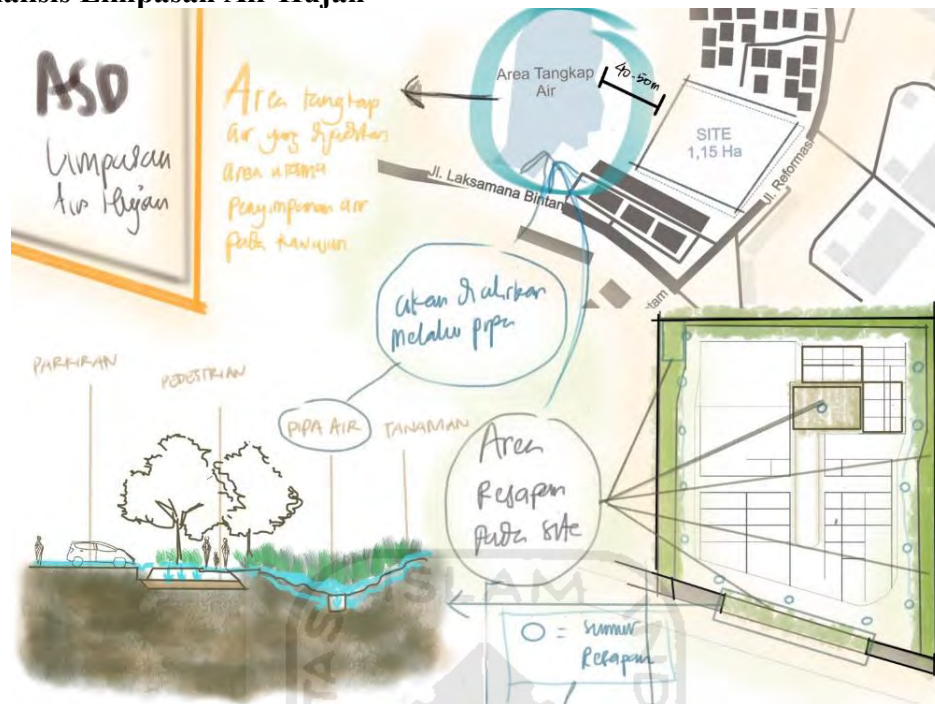 Limpasan Air Hujan
ASD
Limpasan
Air Hujan
Area tangkap
air yang dijadikan
area utama
penyimpanan air
pada kawasan
Area Tangkap
Air
40-50m
SITE
1,15 Ha
Jl. Laksamana Bintan
Jl. Reformasi
akan dialirkan
melalui pipa
PARKIRAN
PEDESTRIAN
PIPA AIR
TANAMAN
Area
Resapan
pada site
O = sumur
Resapan
ISLAM